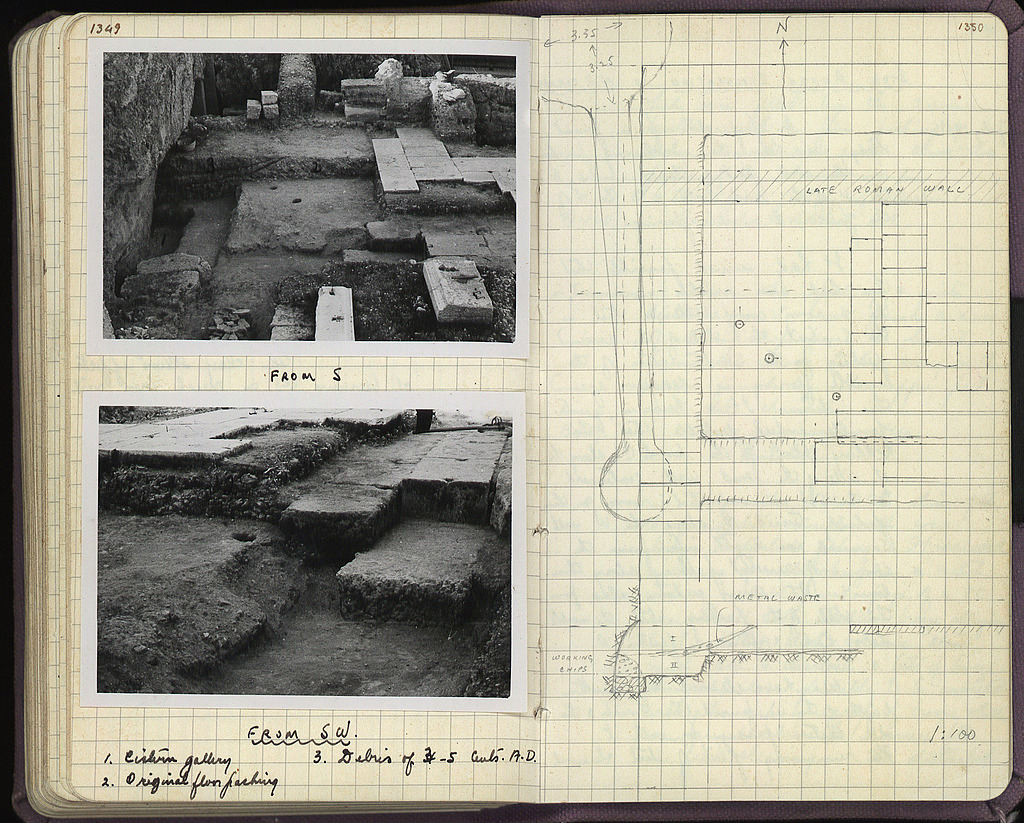 1349
FROM S
FROM SW.
1. Cistern gallery
2. Original floor packing
3. Debris of 4-5 Cents. A.D.
1350
3.35
3.25
N
LATE ROMAN WALL
METAL WASTE
I
II
WORKING
CHIPS
1:100